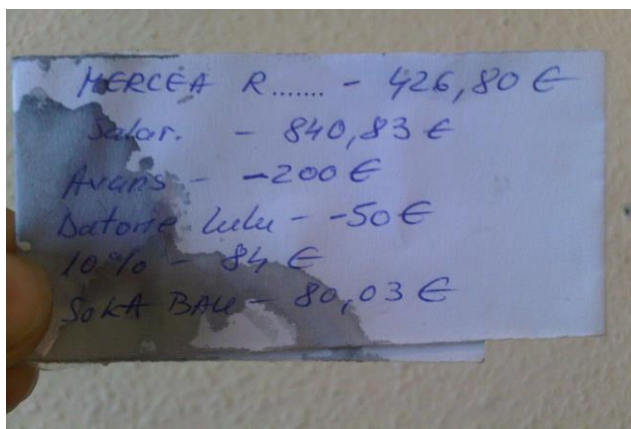 MERCEA R....... - 426,80 €
Salar. - 840,83 €
Avans - -200 €
Datorie Lulu - -50 €
10% - 84 €
SOKA BAU - 80,03 €